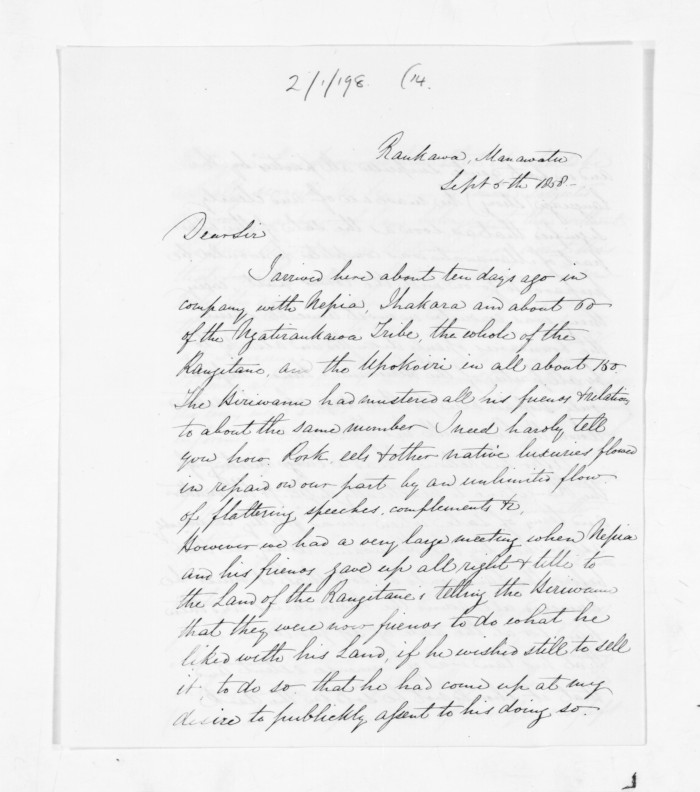 2/1/198. (14.
Raukawa, Manawatu
Sept 5th 1858-
Dear Sir
I arrived here about ten days ago in
company with Nepia, Ihakara and about 60
of the Ngatiraukawa Tribe, the whole of the
Rangitane, an the Upokoiri in all about 150
The Hiriwanu had mustered all his friends & relation
to about the same number I need hardly tell
you how. Pork, eels & other native luxuries flowed
in repaid on our part by an unlimited flow
of flattering speeches, complements &c.
However we had a very large meeting when Nepia
and his friends gave up all right & title to
the Land of the Rangitane's telling the Hiriwanu
that they were now friends to do what he
liked with his Land, if he wished still to sell
it, to do so. that he had come up at my
desire to publickly assent to his doing so.